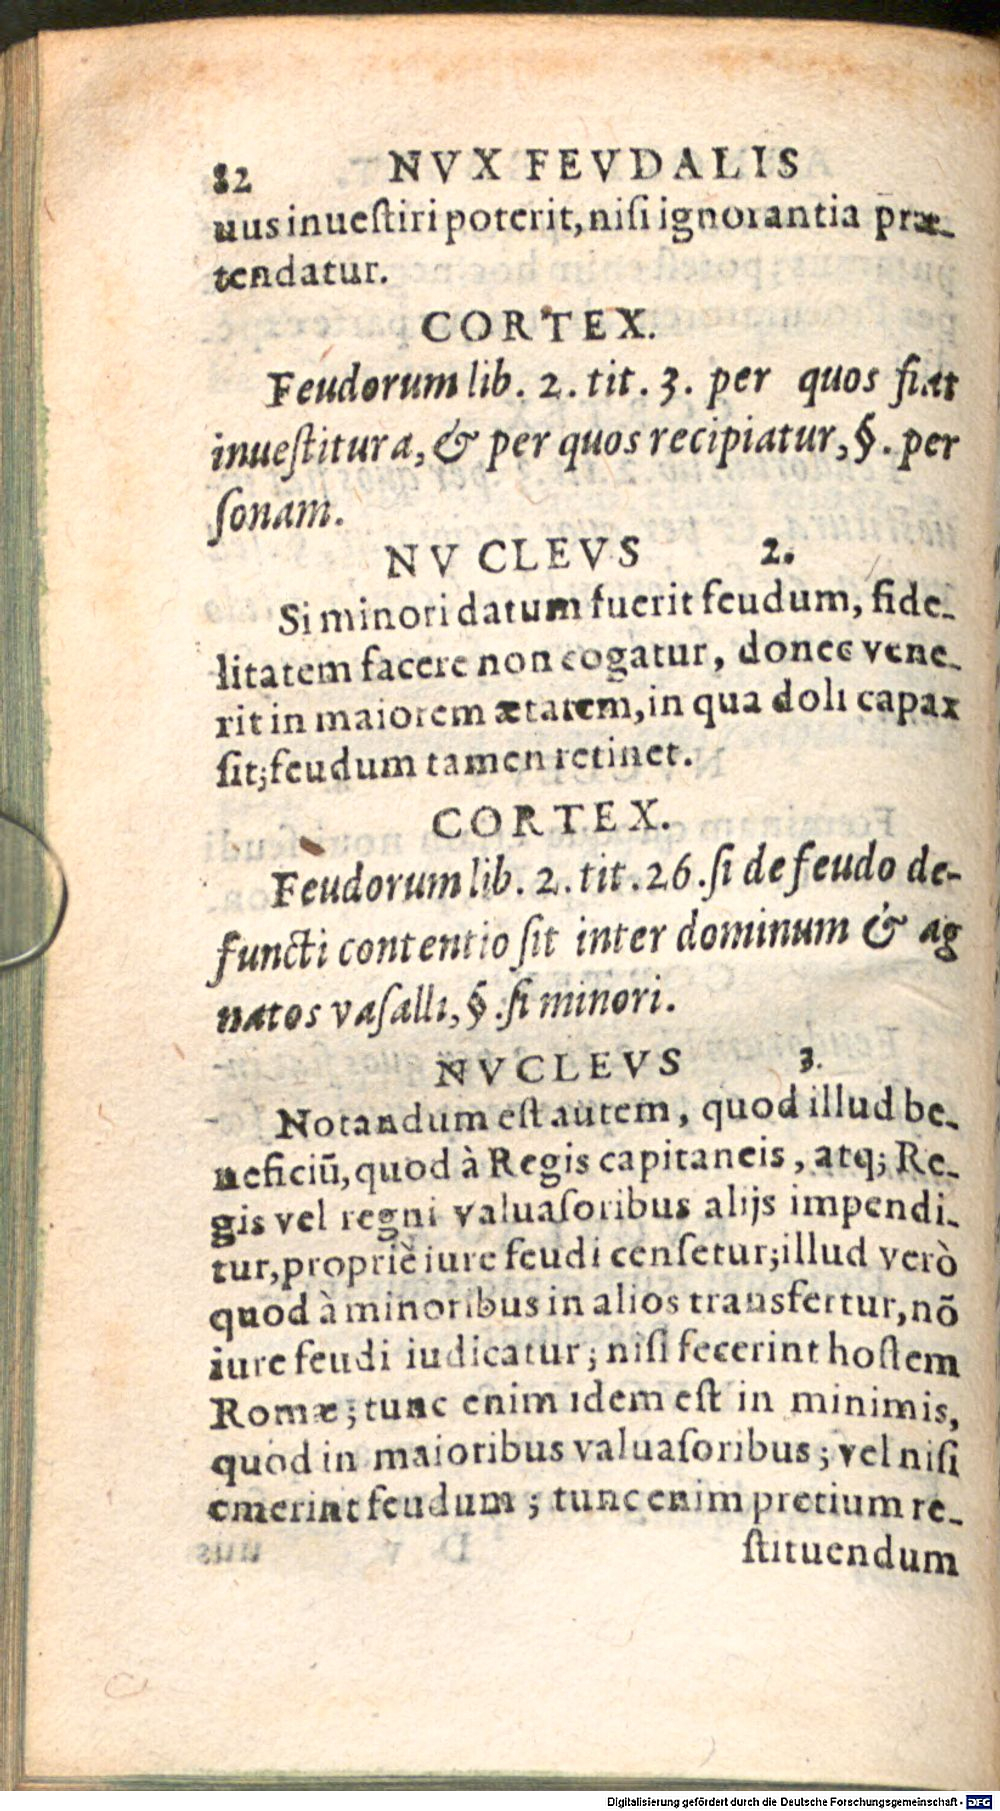 82 NVX FEVDALIS
uus inueſtiri poterit, niſi ignorantia præ-
tendatur.
CORTEX.
Feudorum lib. 2. tit. 3. per quos fiat
inueſtitura, & per quos recipiatur, §. per
ſonam.
NVCLEVS 2.
Si minori datum fuerit feudum, fide-
litatem facere non cogatur, donec vene-
rit in maiorem ætatem, in qua doli capax
ſit; feudum tamen retinet.
CORTEX.
Feudorum lib. 2. tit. 26. ſi de feudo de-
functi contentio ſit inter dominum & ag
natos vaſalli, §. ſi minori.
NVCLEVS 3.
Notandum eſt autem, quod illud be-
neficiũ, quod à Regis capitaneis, atq; Re-
gis vel regni valuaſoribus alijs impendi-
tur, propriè iure feudi cenſetur; illud verò
quod à minoribus in alios transfertur, nõ
iure feudi iudicatur; niſi fecerint hoſtem
Romæ; tunc enim idem eſt in minimis,
quod in maioribus valuaſoribus; vel niſi
emerint feudum; tunc enim pretium re-
ſtituendum
Digitalisierung gefördert durch die Deutsche Forschungsgemeinschaft - DFG